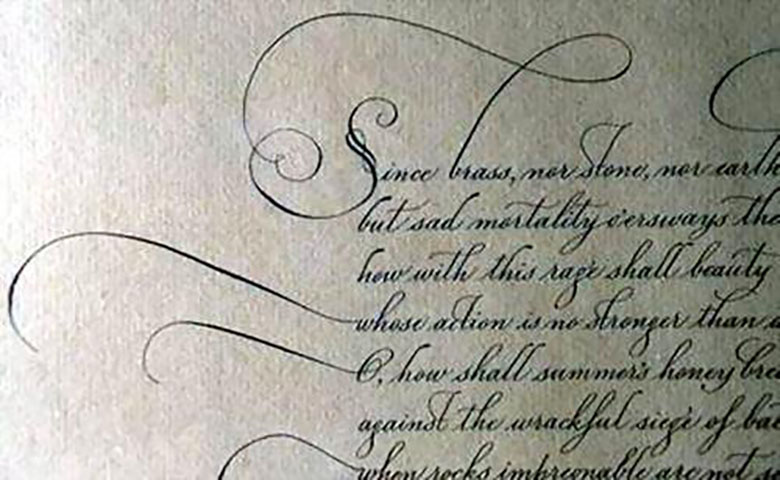 Since brass, nor stone, nor earth
but sad mortality o'ersways
how with this rage shall beauty
whose action is no stronger than a
O, how shall summer's honey
against the wrackful siege of
when rocks impregnable are not